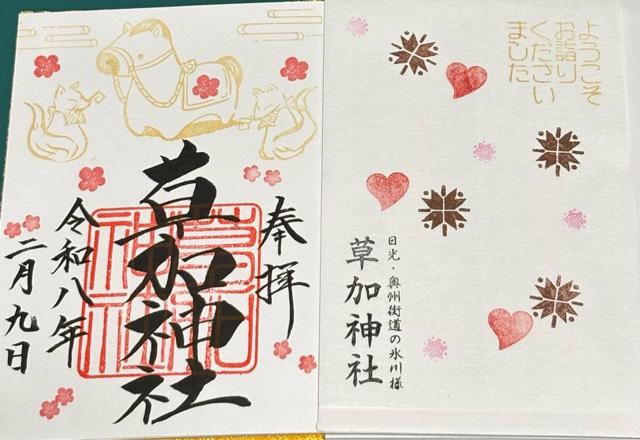 奉拝
草加神社
草加神社
令和八年
二月九日
ようこそ
お詣り
ください
ました
日光・奥州街道の氷川様
草加神社